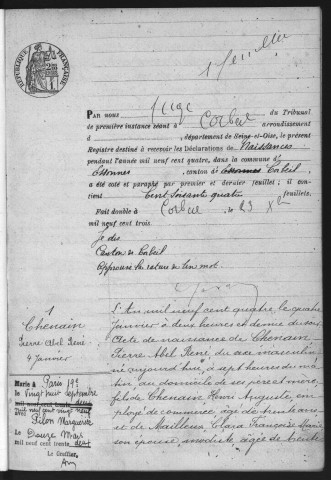 RÉPUBLIQUE FRANÇAISE
1er feuillet
PAR nous Juge du Tribunal
de première instance séant à Corbeil arrondissement
d , département de Seine-et-Oise, le présent
Registre destiné à recevoir les Déclarations de Naissances
pendant l'année mil neuf cent quatre, dans la commune de
Essonnes, canton d Essonnes Corbeil
a été coté et paraphé par premier et dernier feuillet; il con-
tient Cent soixante quatre feuillets.
Fait double à Corbeil, le 23 Xbre
mil neuf cent trois.
Je dis
Canton de Corbeil
Approuvé la rature de un mot.
1
Chenain
Pierre Abel René
4 Janvier
L'An mil neuf cent quatre, le quatre
Janvier à deux heures et demie du soir
Acte de naissance de Chenain
Pierre Abel René du sexe masculin
né aujourd'hui, à sept heures du ma-
tin, au domicile de ses père et mère,
fils de Chenain Henri Auguste, em-
ployé de commerce, âgé de trente ans
et de Mailleux Clara Françoise Marie
son épouse, modiste, âgée de trente
Marié à Paris 19e
le vingt huit septembre
mil neuf cent vingt neuf
avec Pilon Marguerite
le Douze Mars
mil neuf cent trente deux
Le Greffier,